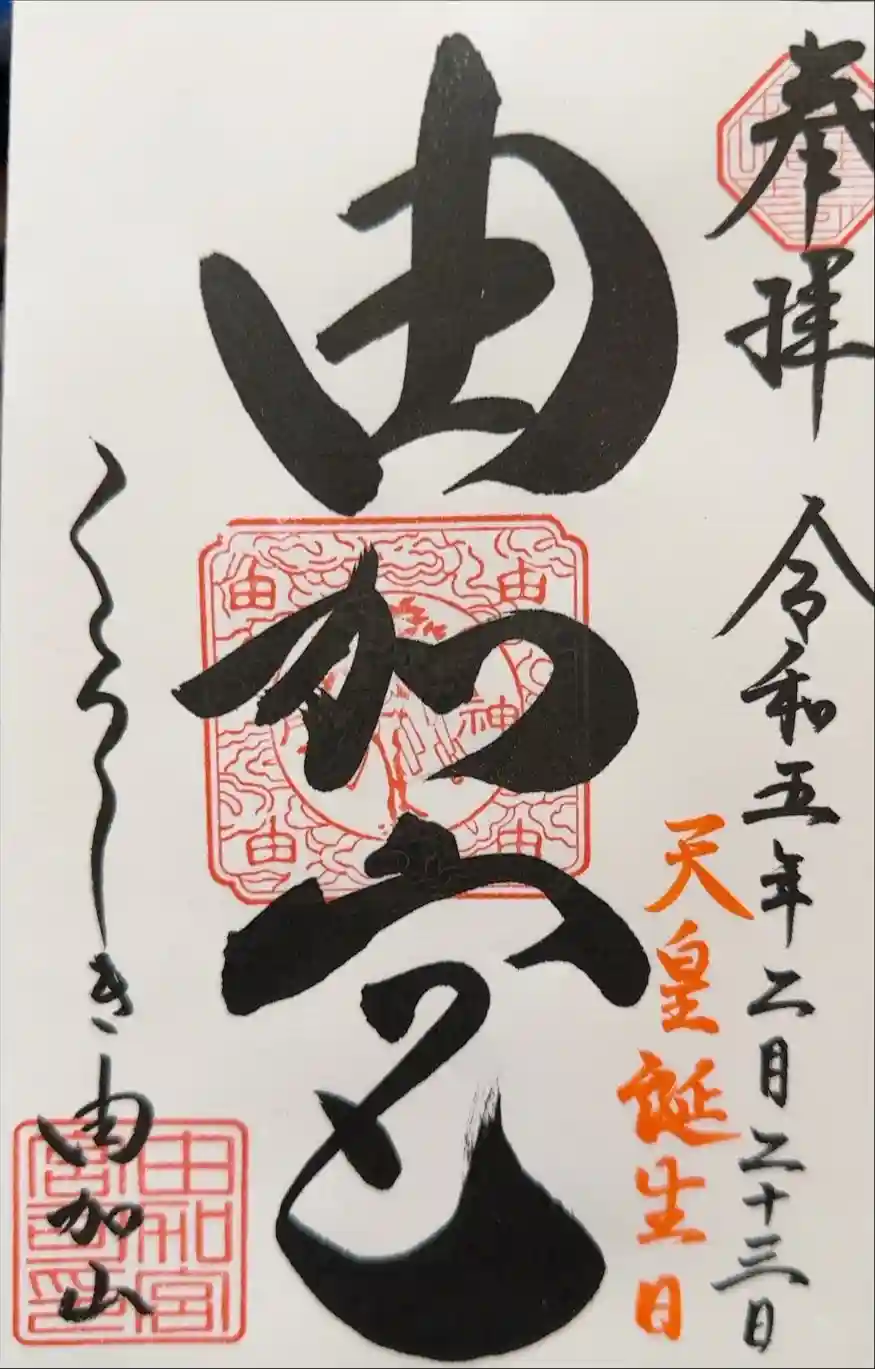 奉拝
令和五年二月二十三日
天皇誕生日
由加宮
くらしき由加山
由
由
神
由
由
由加宮
宮司印